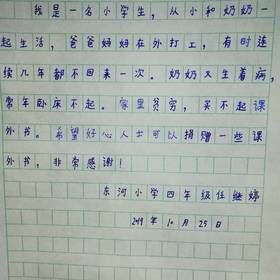 我是一名小学生，从小和奶奶一
起生活，爸爸妈妈在外打工，有时连
续几年都不回来一次。奶奶又生着病，
常年卧床不起。家里贫穷，买不起课
外书。希望好心人士可以捐赠一些课
外书，非常感谢！
东河小学四年级任继婷
2019年10月25日